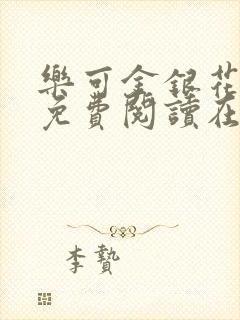 樂可金銀花
免費閱讀在
李贄